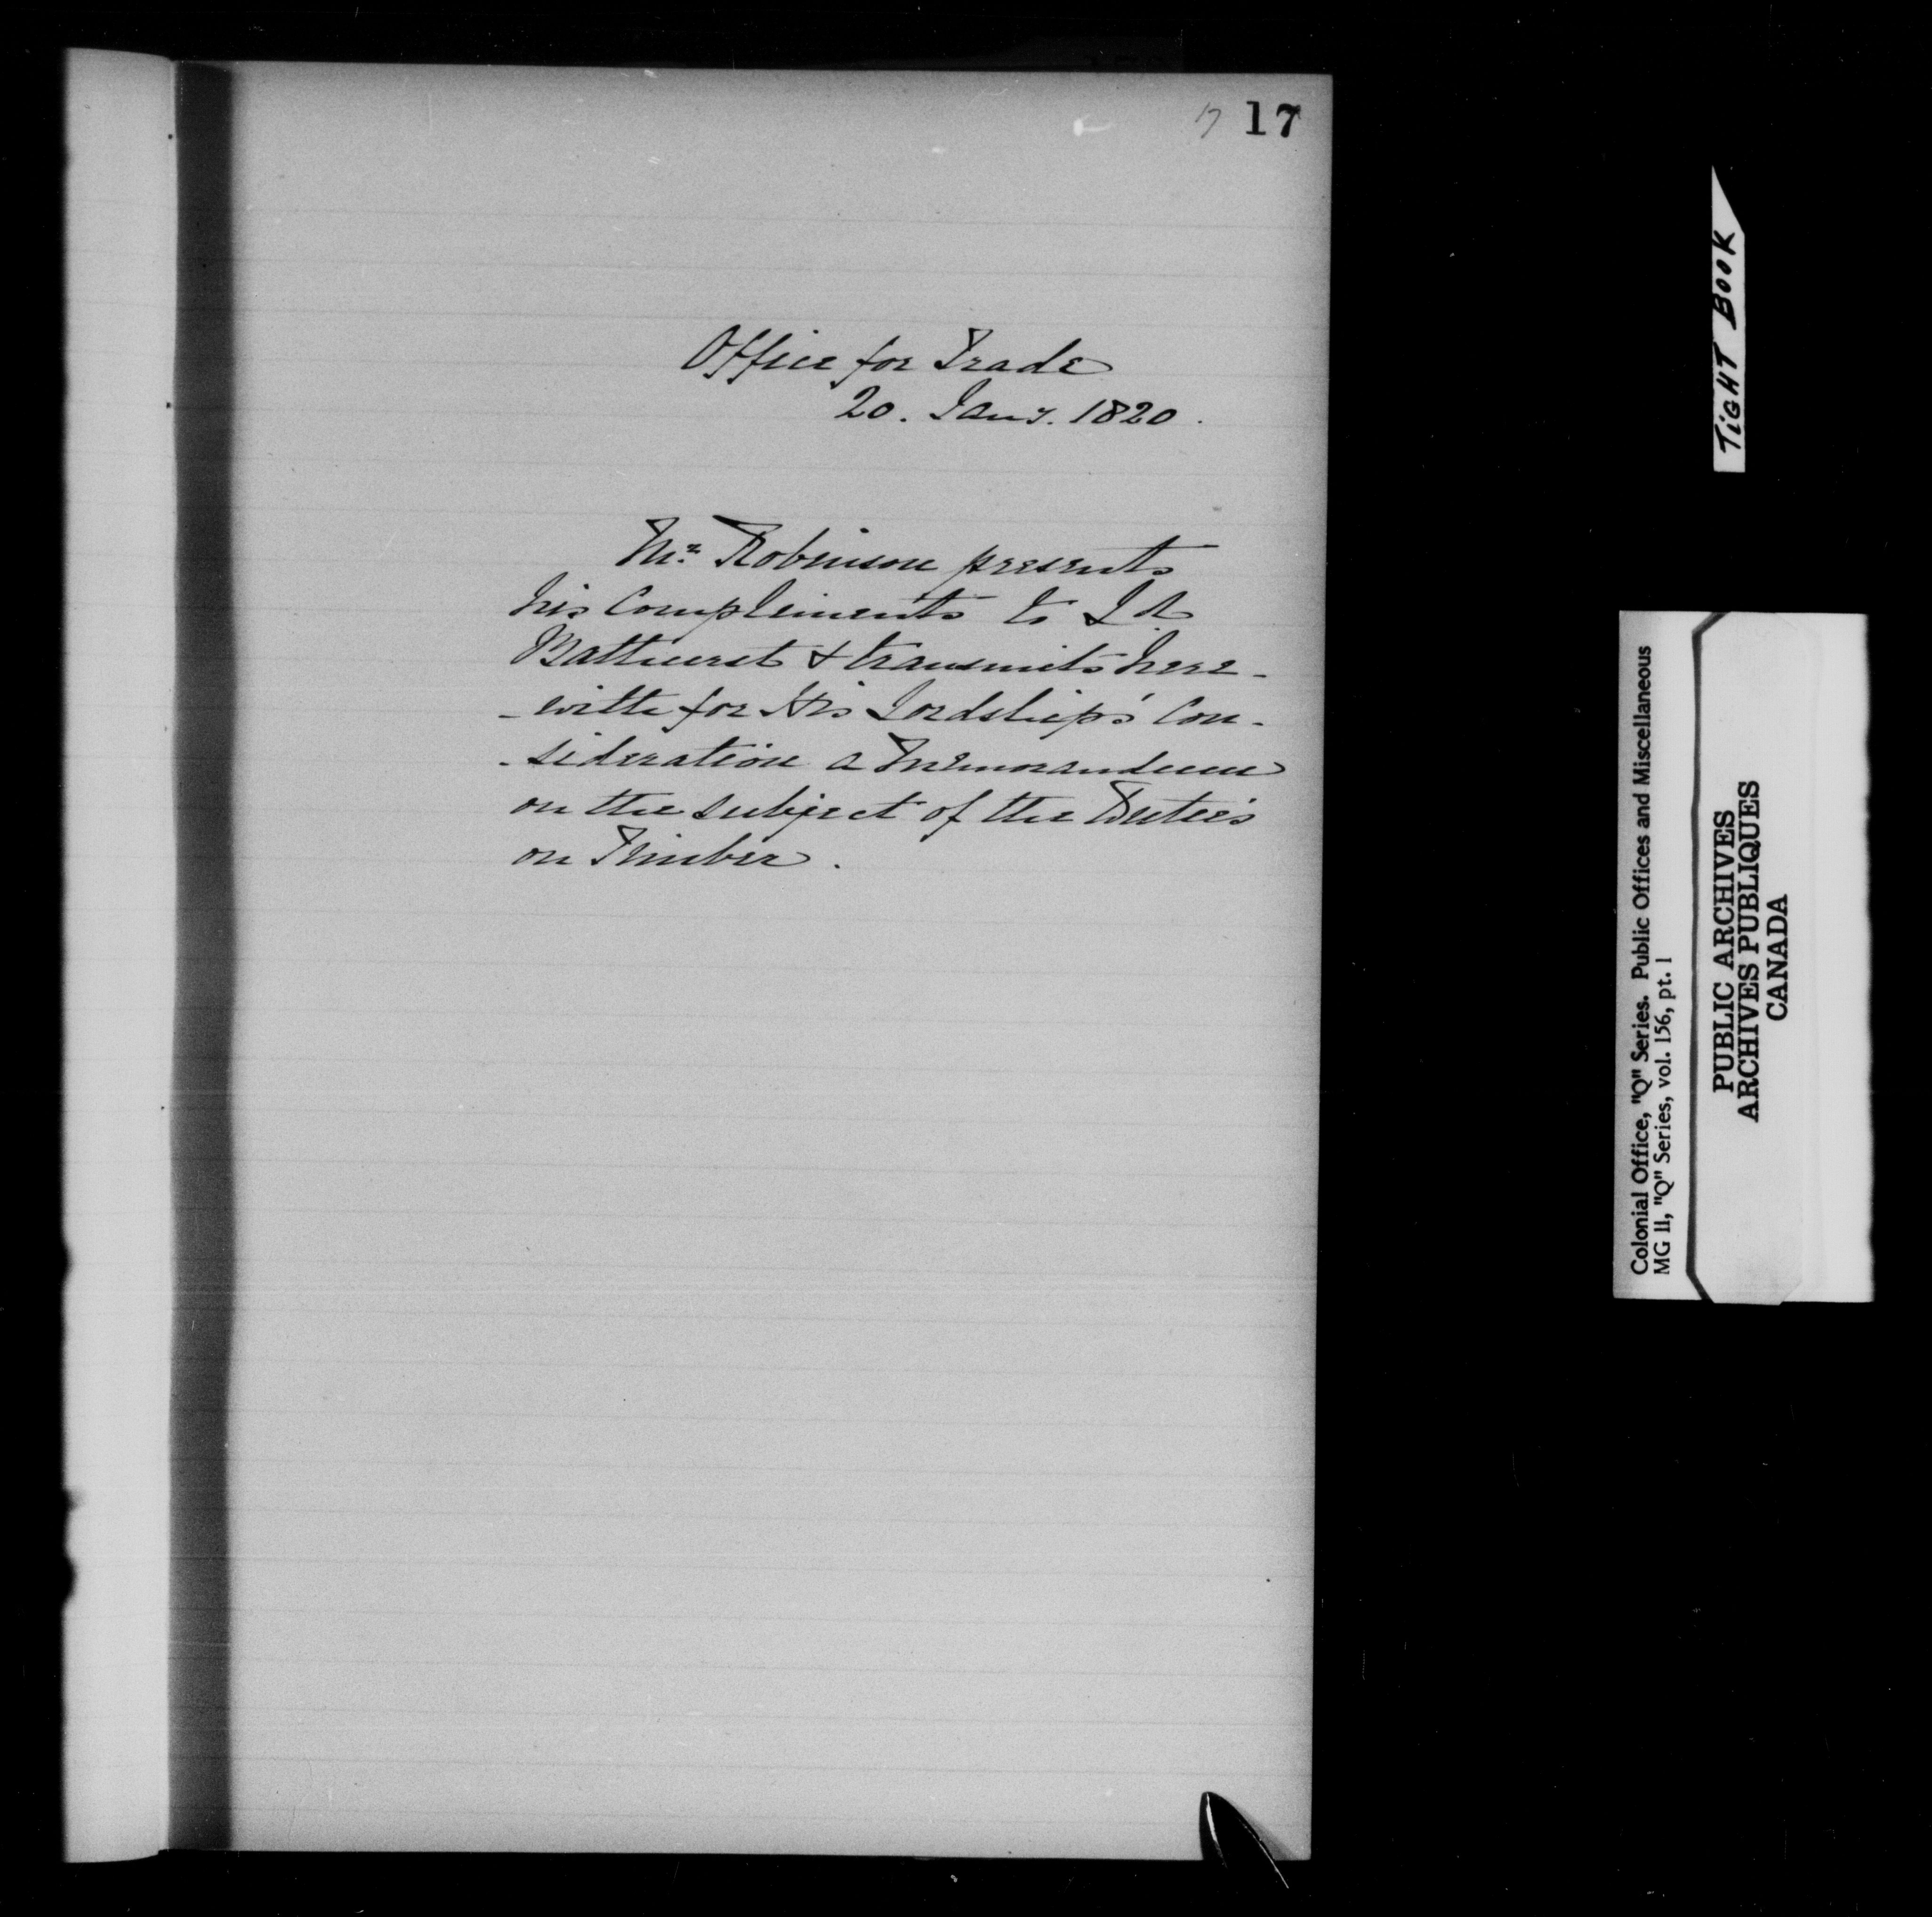 17 17
Office for Trade
20. Jany. 1820.
Mr. Robinson presents
his Compliments to Ld.
Batthurst & transmits here-
-with for His Lordship's Con-
-sideration a Memorandum
on the subject of the Duties
on Timber.
TIGHT BOOK
Colonial Office, "Q" Series. Public Offices and Miscellaneous
MG 11, "Q" Series, vol. 156, pt. 1
PUBLIC ARCHIVES
ARCHIVES PUBLIQUES
CANADA